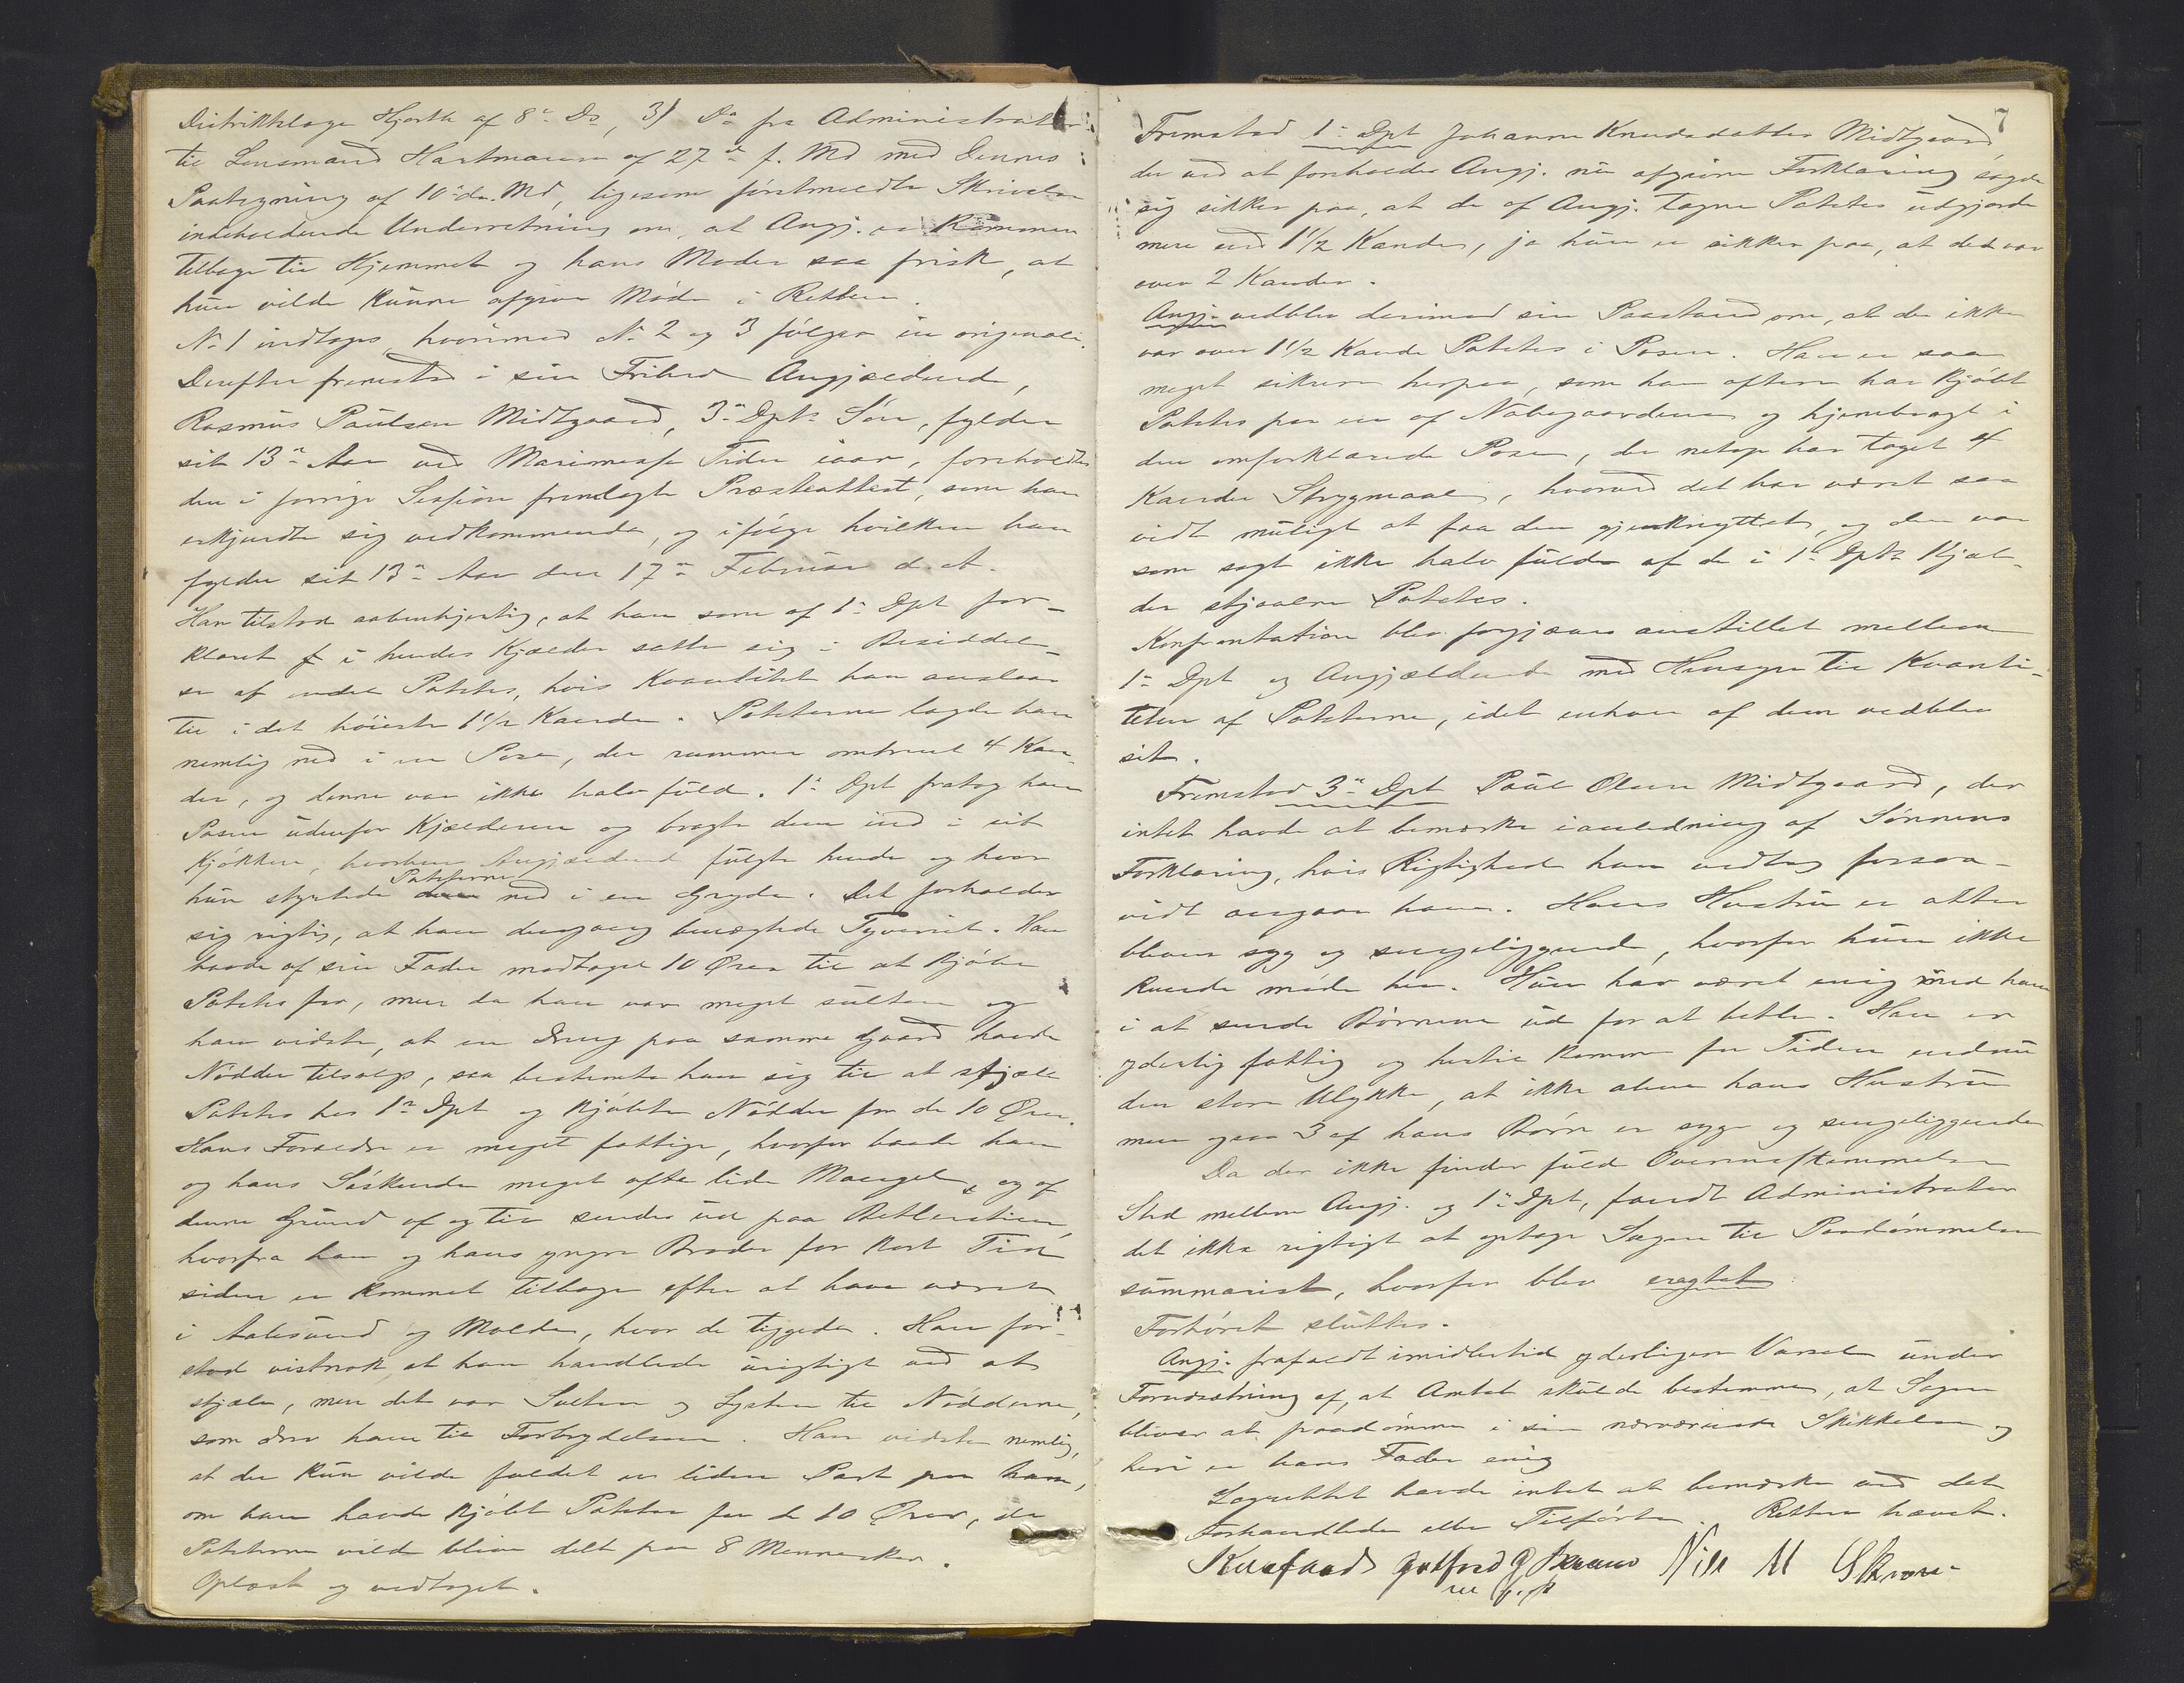 Distriktslæge Hjorth af 8de Ds, 3) Do fra Administrator
til Lensmand Hartmann af 27de f. Md med Dennes
Paategning af 10de ds. Md, ligesom førstmeldte Skrivelse
indeholdende Underretning om, at Angj. er kommen
tilbage til Hjemmet og hans Moder saa frisk, at
hun vilde kunne afgive Møde i Retten.
No 1 indtages hvorimod No 2 og 3 følger in originali.
Derefter fremstod i sin Frihed Angjældende,
Rasmus Paulsen Midtgaard, 3de Dpts Søn, fylder
sit 13de Aar ved Marimesse Tider iaar, foreholdtes
den i forrige Session fremlagte Præsteattest, som han
erkjendte sig vedkommende, og ifølge hvilken han
fylder sit 13de Aar den 17de Februar d. A.
Han tilstod aabenhjertig, at han som af 1ste Dpt for-
klaret i hendes Kjælder satte sig i Besiddel-
se af endel Poteter, hvis Kvantitet han anslaar
til i det høieste 1 1/2 Kande. Poteterne lagde han
nemlig ned i en Pose, der rummer omtrent 4 Kan-
der, og denne var ikke halv fuld. 1ste Dpt fratog ham
Posen udenfor Kjælderen og bragte den ind i sit
Kjøkken, hvorhen Angjældende fulgte hende og hvor
hun styrtede Poteterne ned i en Gryde. Det forholder
sig rigtig, at han dengang benægtede Tyveriet. Han
havde af sin Fader modtaget 10 Ører til at kjøbe
Poteter for, men da han var meget sulten og
han vidste, at en Dreng paa samme Gaard havde
Nødder tilsalgs, saa bestemte han sig til at stjæle
Poteter hos 1ste Dpt og kjøbte Nødder for de 10 Ører.
Hans Forældre er meget fattige, hvorfor baade han
og hans Søskende meget ofte lide Mangel, og af
denne Grund af og til sendes ud paa Betlersti,
hvorfra han og hans yngre Broder for kort Tid
siden er kommet tilbage efter at have været
i Aalesund og Molde, hvor de tiggede. Han for-
stod vistnok at han handlede urigtigt ved at
stjæle, men det var Sulten og Lysten til Nødderne,
som drev ham til Forbrydelsen. Han vidste nemlig,
at der kun vilde faldet en liden Part paa ham,
om han havde kjøbt Poteter for de 10 Ører, da
Poteterne vilde blive delt paa 8 Mennesker.
Oplæst og vedtaget.
7
Fremstod 1ste Dpt Johanne Knudsdatter Midtgaard,
der ved at foreholdes Angj. nu afgivne Forklaring sagde
sig sikker paa, at de af Angj. tagne Poteter udgjorde
mere end 1 1/2 Kander, ja hun er sikker paa, at det var
over 2 Kander.
Angj. vedblev derimod sin Paastand om, at der ikke
var over 1 1/2 Kande Poteter i Posen. Han er saa
meget sikrere herpaa, som han oftere har kjøbt
Poteter paa en af Nabogaardene og hjembragt i
den omforklarede Pose, der netop har taget 4
Kander Strygmaal, hvorved det har været saa
vidt muligt at faa den gjenknyttet, og den var
som sagt ikke halv fuld af de i 1ste Dpts Kjæl-
der stjaalne Poteter.
Konfrontation blev forgjæves anstillet mellem
1ste Dpt og Angjældende med Hensyn til Kvanti-
teten af Poteterne, idet enhver af dem vedblev
sit.
Fremstod 3de Dpt Paul Olsen Midtgaard, der
intet havde at bemærke i anledning af Sønnens
Forklaring, hvis Rigtighed han vedtog forsaa-
vidt angaar ham. Hans Hustru er atter
bleven syg og sengeliggende, hvorfor hun ikke
kunde møde her. Hun har været enig med ham
i at sende Børnene ud for at betle. Han er
yderlig fattig og hertil kommer for Tiden endnu
den store Ulykke, at ikke alene hans Hustru
men ogsaa 3 af hans Børn er syge og sengeliggende
Da der ikke finder fuld Overensstemmelse
Sted mellem Angj. og 1ste Dpt, fandt Administrator
det ikke rigtigt at optage Sagen til Paadømmelse
summarisk, hvorfor blev eragtet:
Forhøret sluttes.
Angj. frafaldt imidlertid yderligere Varsel under
Forudsætning af, at Amtet skulde bestemme, at Sagen
bliver at paadømme i sin nærværende Skikkelse og
heri er hans Fader enig
Lagrettet havde intet at bemærke ved det
Forhandlede eller Tilførte. Retten hævet.
Nils M
m. p. P.